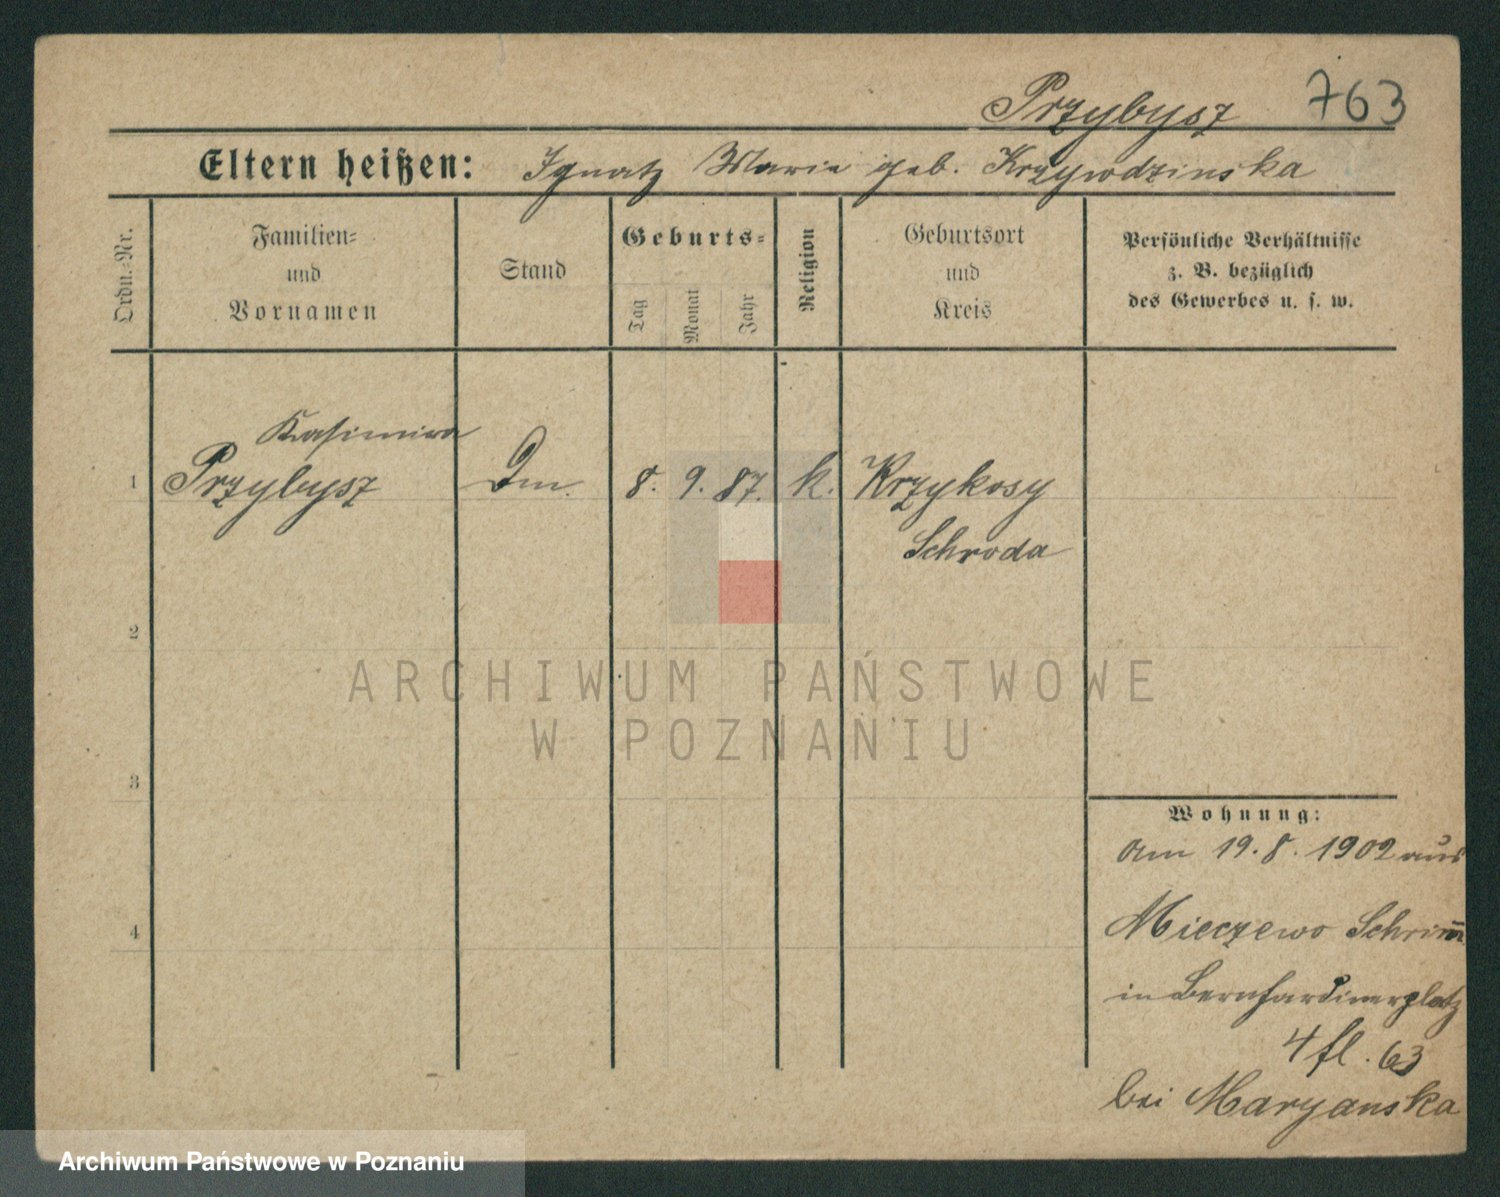 Przybysz 763
Eltern heißen: Ignatz Marie geb. Krzywdzinska
Ordn.-Nr.
Familien-
und
Vornamen
Stand
Geburts-
Tag
Monat
Jahr
Religion
Geburtsort
und
Kreis
Persönliche Verhältnisse
z. B. bezüglich
des Gewerbes u. s. w.
Kasimira
1 Przybysz Dm. 8. 9. 87. k. Krzykosy
Schroda
2
ARCHIWUM PAŃSTWOWE
W POZNANIU
3
Wohnung:
am 19.8.1902 aus
4
Mieczewo Schrim̄
in Bernhardinerplatz
4 fl. 63
bei Maryanska
Archiwum Państwowe w Poznaniu